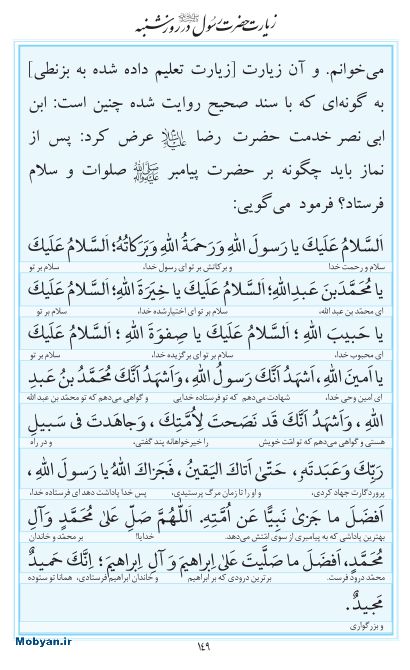 زیارت حضرت رسول ﷺ در روز شنبه
می‌خوانم. و آن زیارت [زیارت تعلیم داده شده به بزنطی]
به گونه‌ای که با سند صحیح روایت شده چنین است: ابن
ابی نصر خدمت حضرت رضا علیه‌السلام عرض کرد: پس از
نماز باید چگونه بر حضرت پیامبر ﷺ صلوات و سلام
فرستاد؟ فرمود می‌گویی:
اَلسَّلامُ عَلَيكَ يا رَسولَ اللهِ وَرَحمَةُ اللهِ وَبَرَكاتُهُ؛ اَلسَّلامُ عَلَيكَ
سلام و رحمت خدا، و برکاتش بر تو ای رسول خدا، سلام بر تو
يا مُحَمَّدَ بنَ عَبدِاللهِ؛ اَلسَّلامُ عَلَيكَ يا خِيَرَةَ اللهِ؛ اَلسَّلامُ عَلَيكَ
ای محمد بن عبد الله، سلام بر تو ای اختیار شده خدا، سلام بر تو
يا حَبيبَ اللهِ ؛ اَلسَّلامُ عَلَيكَ يا صِفوَةَ اللهِ ؛ اَلسَّلامُ عَلَيكَ
ای محبوب خدا، سلام بر تو ای برگزیده خدا، سلام بر تو
يا اَمينَ اللهِ ، اَشهَدُ اَنَّكَ رَسولُ اللهِ، وَاَشهَدُ اَنَّكَ مُحَمَّدُ بنُ عَبدِ
ای امین وحی خدا، شهادت می‌دهم که تو فرستاده خدایی و گواهی می‌دهم که تو محمد بن عبد الله
اللهِ ، وَاَشهَدُ اَنَّكَ قَد نَصَحتَ لِاُمَّتِكَ ، وَجاهَدتَ فى سَبيلِ
هستی و گواهی می‌دهم که تو امّت خویش را خیرخواهانه پند گفتی، و در راه
رَبِّكَ وَعَبَدتَهُ، حَتّىٰ اَتاكَ اليَقينُ، فَجَزاكَ اللهُ يا رَسولَ اللهِ ،
پروردگارت جهاد کردی، و او را تا زمان مرگ پرستیدی، پس خدا پاداشت دهد ای فرستاده خدا،
اَفضَلَ ما جَزىٰ نَبِيًّا عَن اُمَّتِهِ. اَللّٰهُمَّ صَلِّ عَلىٰ مُحَمَّدٍ وَآلِ
بهترین پاداشی که به پیامبری از سوی امّتش می‌دهد. خدایا! بر محمد و خاندان
مُحَمَّدٍ، اَفضَلَ ما صَلَّيتَ عَلىٰ اِبراهيمَ وَ آلِ اِبراهيمَ؛ اِنَّكَ حَميدٌ
محمّد درود فرست. برترین درودی که بر ابراهیم و خاندان ابراهیم فرستادی، همانا تو ستوده
مَجيدٌ.
و بزرگواری
۱۴۹
Mobyan.ir